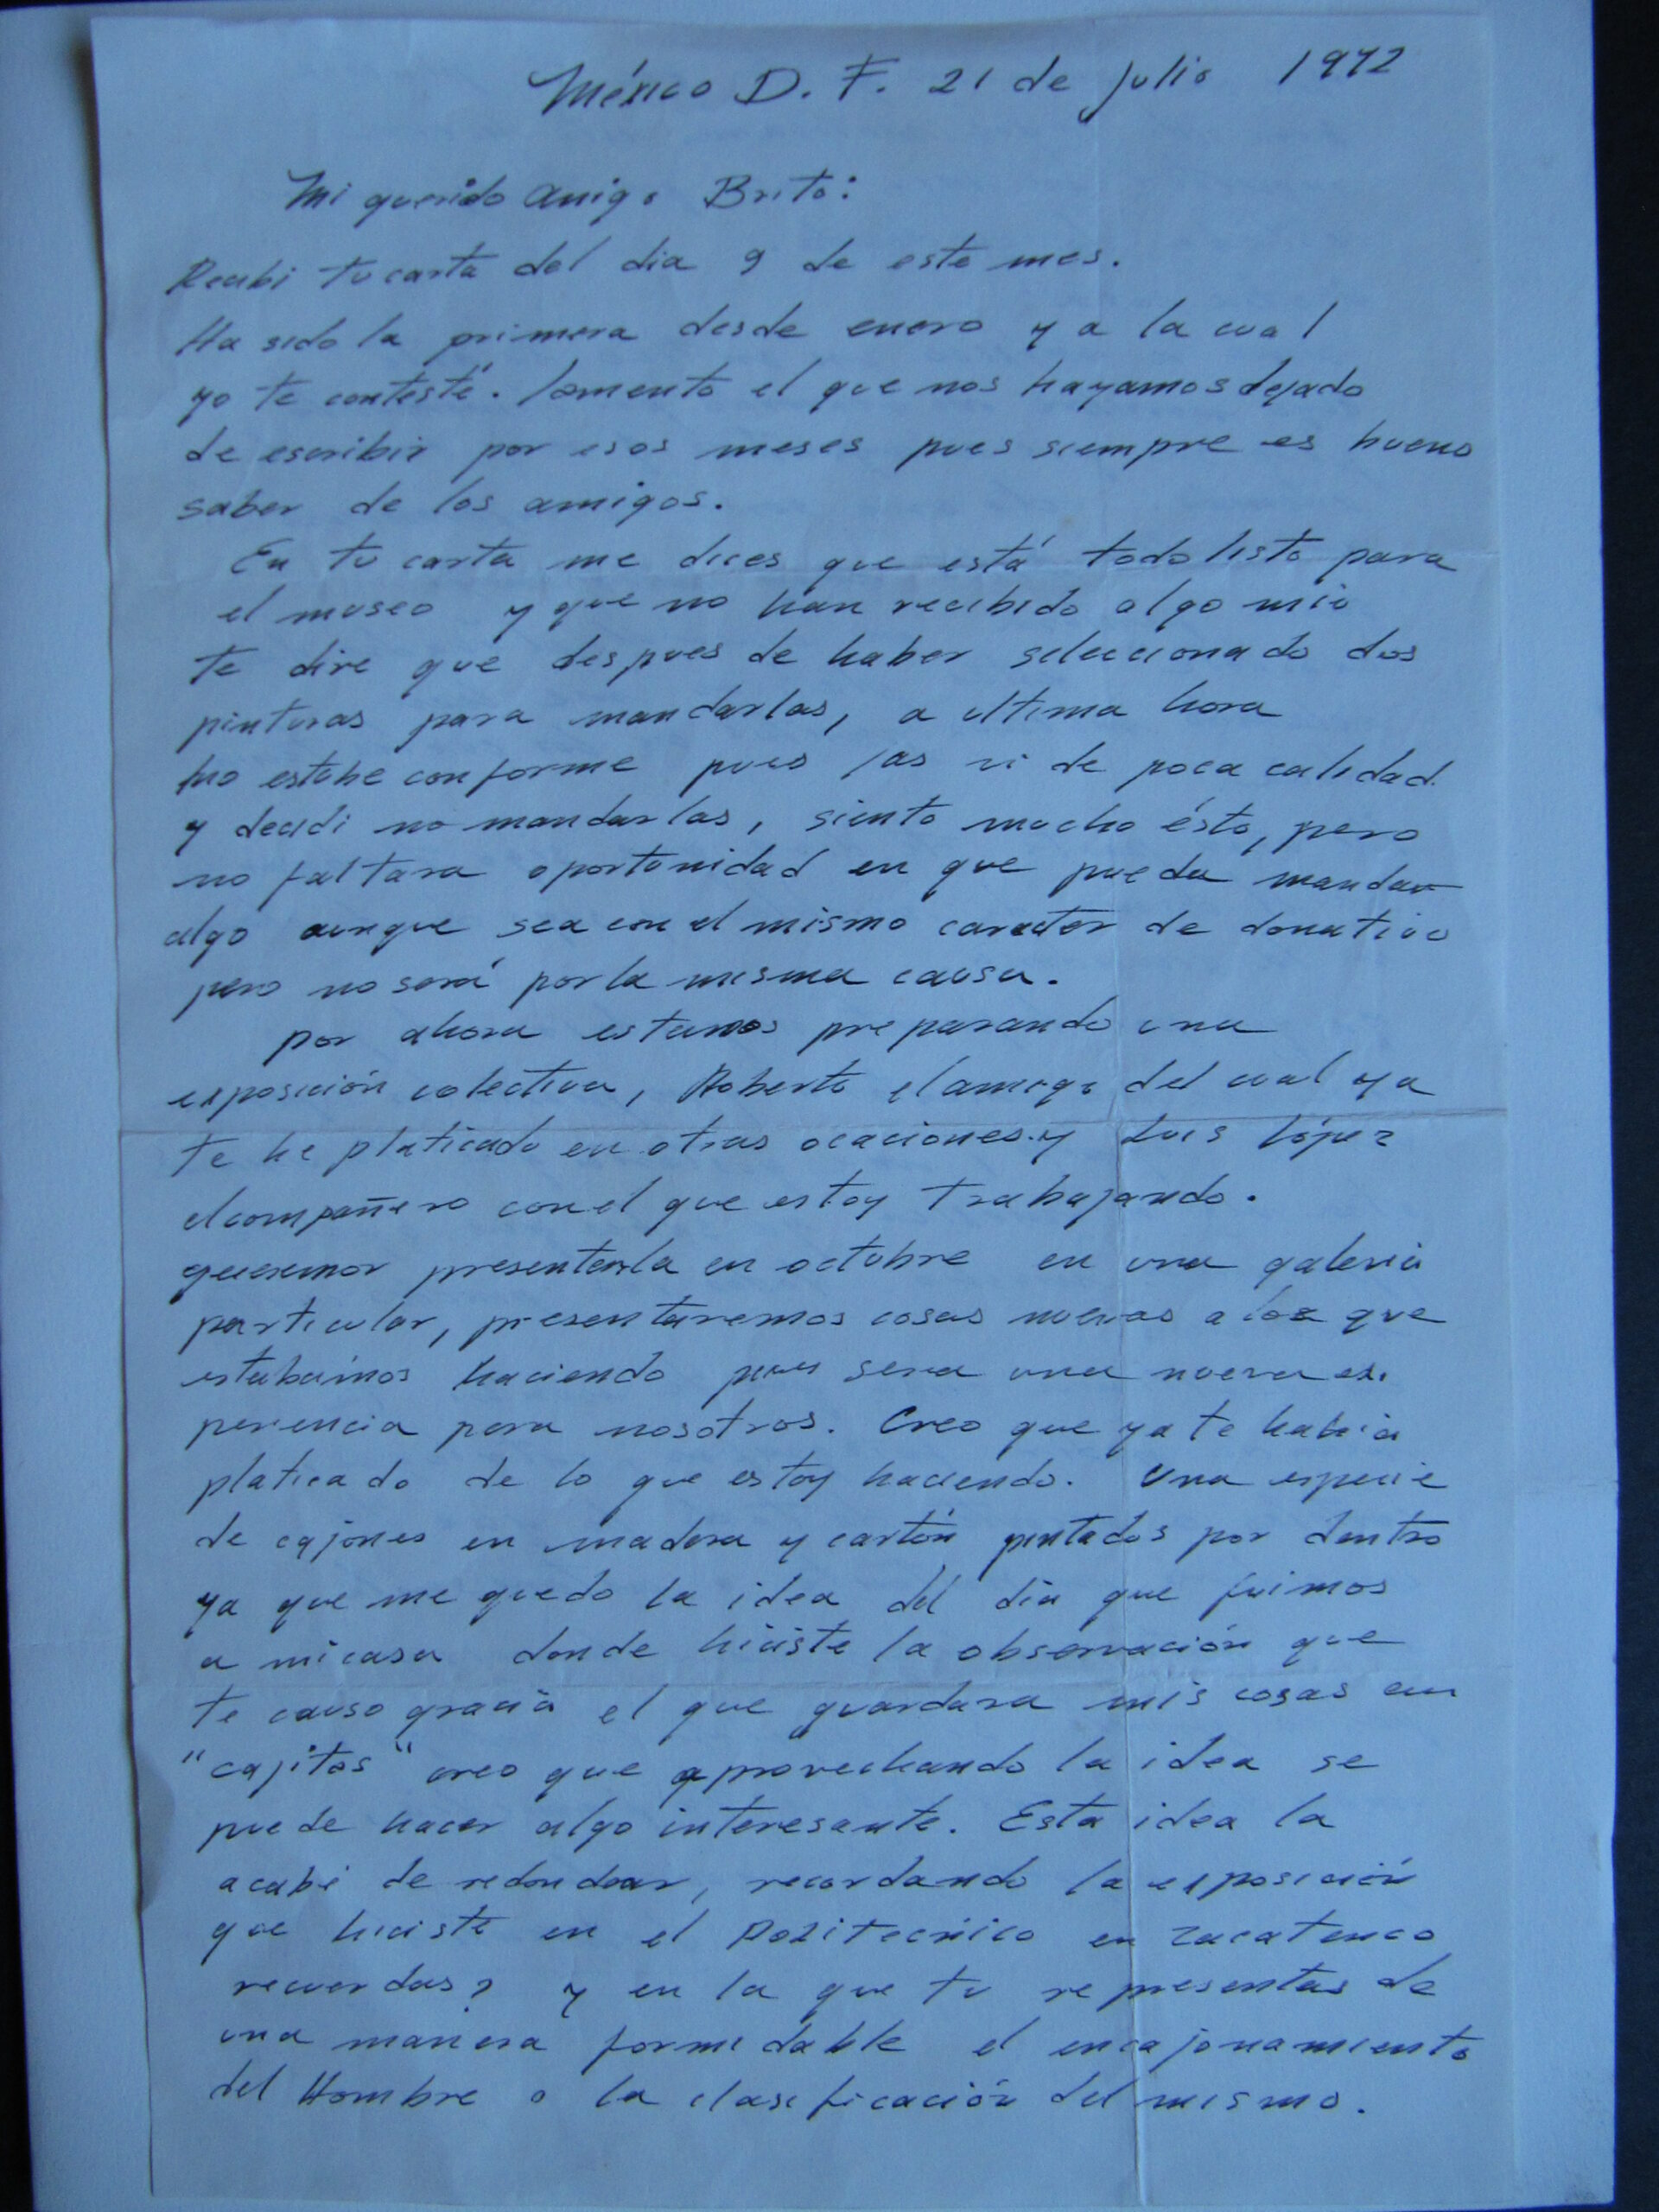 México D. F. 21 de julio 1972
Mi querido amigo Brito:
Recibi tu carta del dia 9 de este mes.
Ha sido la primera desde enero y a la cual
yo te contesté. lamento el que nos hayamos dejado
de escribir por esos meses pues siempre es bueno
saber de los amigos.
En tu carta me dices que está todo listo para
el museo y que no han recibido algo mio
te dire que despues de haber seleccionado dos
pinturas para mandarlas, a ultima hora
no estube conforme pues las vi de poca calidad.
y decidi no mandarlas, siento mucho ésto, pero
no faltara oportunidad en que pueda mandar
algo aunque sea con el mismo caracter de donativo
pero no será por la misma causa.
por ahora estamos preparando una
exposición colectiva, Roberto el amigo del cual ya
te he platicado en otras ocaciones y Luis López
el compañero con el que estoy trabajando.
queremos presentarla en octubre en una galeria
particular, presentaremos cosas nuevas a las que
estabámos haciendo pues sera una nueva ex.
periencia para nosotros. Creo que ya te habia
platicado de lo que estoy haciendo. Una especie
de cajones en madera y cartón pintados por dentro
ya que me quedo la idea del dia que fuimos
a mi casa donde hiciste la observación que
te causo gracia el que guardara mis cosas en
"cajitas" creo que aprovechando la idea se
puede hacer algo interesante. Esta idea la
acabé de redondear, recordando la exposición
que hiciste en el Politecnico en Zacatenco
recuerdas? y en la que tu representas de
una manera formidable el encajonamiento
del Hombre o la clasificación del mismo.